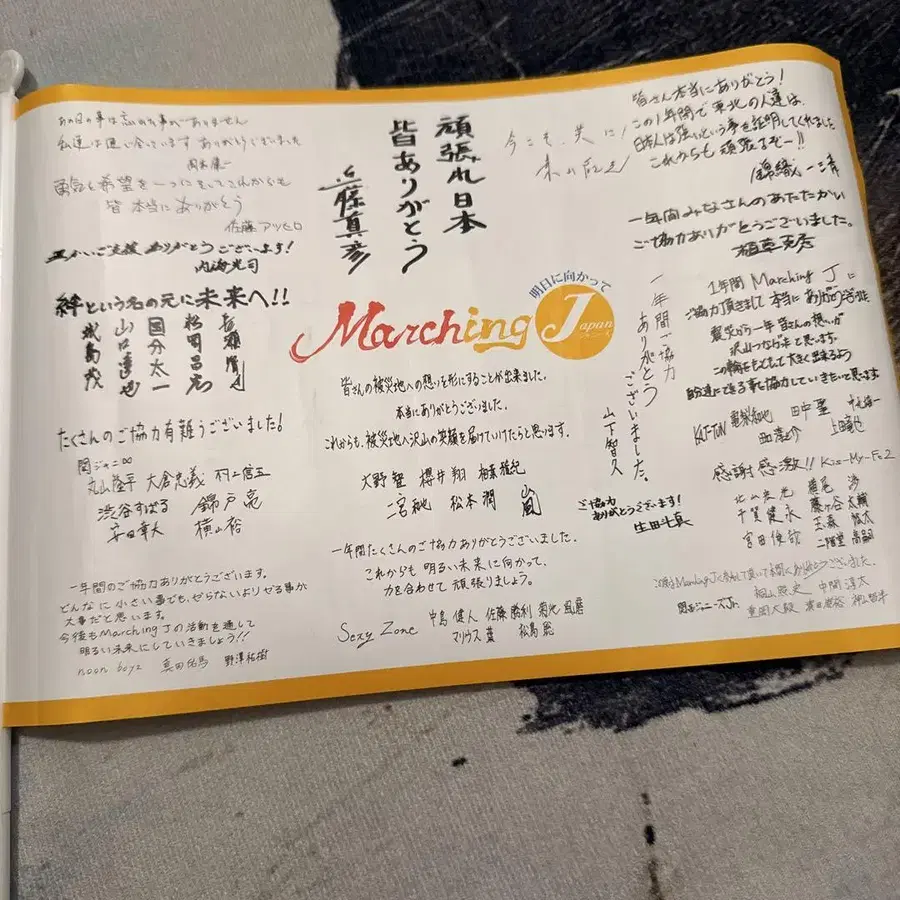 あの日の事は忘れた事がありません
私達は思い合っています ありがとうございました
岡本健一
勇気と希望を一つにしてこれからも
皆 本当にありがとう
佐藤アツヒロ
ご支援 ありがとうございます!
内海光司
絆という名の元に未来へ!!
長瀬智也
松岡昌宏
国分太一
山口達也
城島茂
たくさんのご協力有難うございました!
関ジャニ∞
丸山隆平 大倉忠義 村上信五
渋谷すばる 錦戸亮
安田章大 横山裕
一年間のご協力ありがとうございます。
どんなに小さい事でも、ゼロじゃないよりゼる事が
大事だと思います。
今後もMarching Jの活動を通して
明るい未来にしていきましょう!!
noon boyz 真田佑馬 野澤祐樹
頑張れ日本
皆ありがとう
近藤真彦
今こそ、共に!
東山紀之
明日に向かって
Marching J
Japan
皆さんの被災地への想いを形にすることが出来ました。
本当にありがとうございました。
これからも、被災地へ沢山の笑顔を届けていけたらと思います。
大野智 櫻井翔 相葉雅紀
二宮和也 松本潤 嵐
一年間たくさんのご協力ありがとうございました。
これからも 明るい未来に向かって、
力を合わせて 頑張りましょう。
Sexy Zone 中島健人 佐藤勝利 菊池風磨
マリウス葉 松島聡
皆さん本当にありがとう!
この1年間で東北の人達は、
日本人は強いという事を証明してくれました
これからも頑張るぞー!!
錦織一清
一年間みなさんのあたたかい
ご協力ありがとうございました。
植草克秀
一年間ご協力
ありがとう
ございました。
山下智久
ご協力
ありがとうございます!
生田斗真
1年間 Marching Jに
ご協力頂きまして 本当にありがとうございました
震災から一年 皆さんの想いが
沢山つながったと思います。
この輪をもっともっと大きく出来るよう
自分達にできる事を協力していきたいと思います
KAT-TUN 亀梨和也 田中聖 中丸雄一
田口淳之介 上田竜也
感謝感激!! Kis-My-Ft2
北山宏光 横尾渉
千賀健永 藤ヶ谷太輔
宮田俊哉 玉森裕太
二階堂高嗣
関西ジャニーズJr. 桐山照史 中間淳太
重岡大毅 濵田崇裕 神山智洋